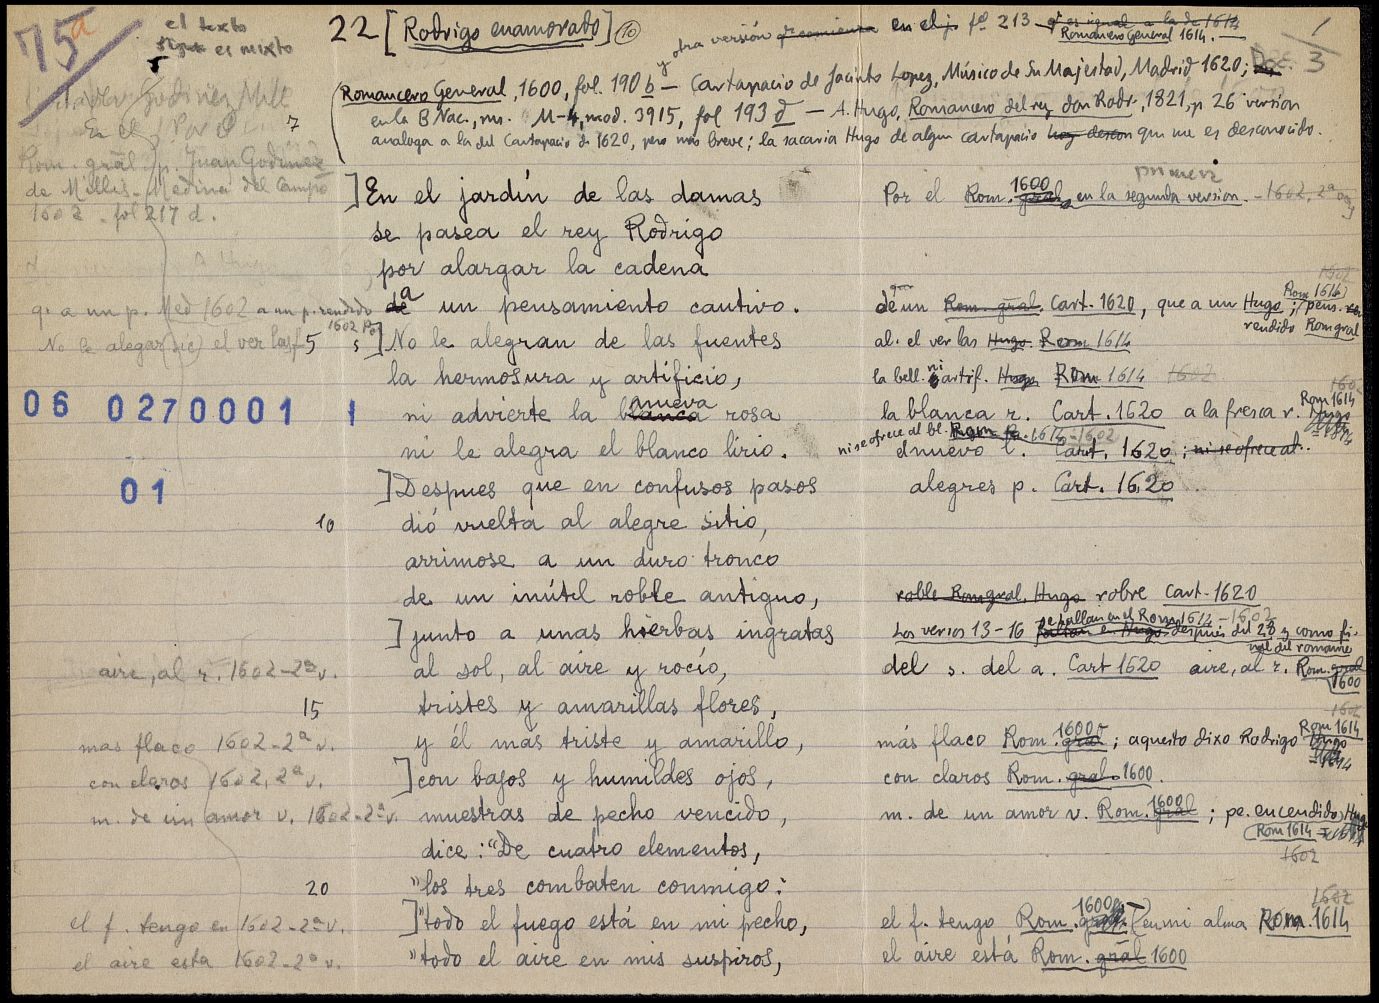 75ª
el texto
sigue es mixto
22 [Rodrigo enamorado] (10)
y otra versión que comienza en el jo fº 213 qe es igual a la de 1614
Romancero General 1614.
1/3
Romancero General, 1600, fol. 190 b — Cartapacio de Jacinto Lopez, Músico de Su Majestad, Madrid 1620;
en la B. Nac., ms. M-4, mod. 3915, fol 193 d — A. Hugo, Romancero del rey don Rodr., 1821, p. 26 version
analoga a la del Cartapacio de 1620, pero más breve; la sacaria Hugo de algun cartapacio hoy descon que me es desconocido.
En el
7
Rom. grãl p. Juan Godinez
de Millis - Medina del Campo
1602 - fol 217 d.
] En el jardín de las damas
Por el Rom. gral 1600 en la segunda version primera - 1602, 2ª
se pasea el rey Rodrigo
por alargar la cadena
q. a un p. Med 1602 a un p. rendido 1602 Po
de a un pensamiento cautivo.
de un Rom. gral. Cart. 1620, que a un Hugo; pens. rendido Rom gral
Rom 1614
1602
No le alegar (sic) el ver las f
5
5 ] No le alegran de las fuentes
al. el ver las Hugo Rom 1614
la hermosura y artificio,
la bell. ni artif. Hugo Rom 1614 1602
06 0270001 1
ni advierte la blanca nueva rosa
la blanca r. Cart. 1620 a la fresca r. Hugo Rom 1614
1602
ni se ofrece al bl. Rom 1614 - 1602
ni le alegra el blanco lirio.
el nuevo l. Cart. 1620; ni se ofrece al.
01
] Despues que en confusos pasos
alegres p. Cart. 1620
10
dió vuelta al alegre sitio,
arrimose a un duro tronco
de un inútil roble antiguo,
roble Rom gral, Hugo robre Cart. 1620
] junto a unas hierbas ingratas
Los versos 13-16 faltan en Hugo se hallan en el Rom 1614 - 1602 después del 28 y como final del romance
aire, al r. 1602 - 2ª v.
al sol, al aire y rocío,
del s. del a. Cart 1620 aire, al r. Rom. gral 1600
15
tristes y amarillas flores,
mas flaco 1602 - 2ª v.
y él mas triste y amarillo,
más flaco Rom. gral 1600; aquesto dixo Rodrigo Hugo Rom 1614
1602
con claros 1602, 2ª v.
] con bajos y humildes ojos,
con claros Rom. gral 1600.
m. de un amor v. 1602 - 2ª v.
muestras de pecho vencido,
m. de un amor v. Rom. gral 1600; pe. encendido Hugo
Rom 1614
1602
dice: "De cuatro elementos,
20
"los tres combaten conmigo:
el f. tengo en 1602 - 2ª v.
] "todo el fuego está en mi pecho,
el f. tengo Rom. gral 1600; en mi alma Rom. 1614
1602
el aire esta 1602 - 2ª v.
"todo el aire en mis suspiros,
el aire está Rom. grãl 1600